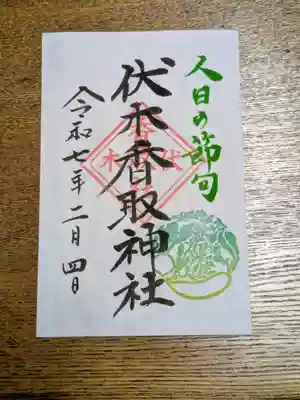 人日の節句
伏木香取神社
令和七年二月四日